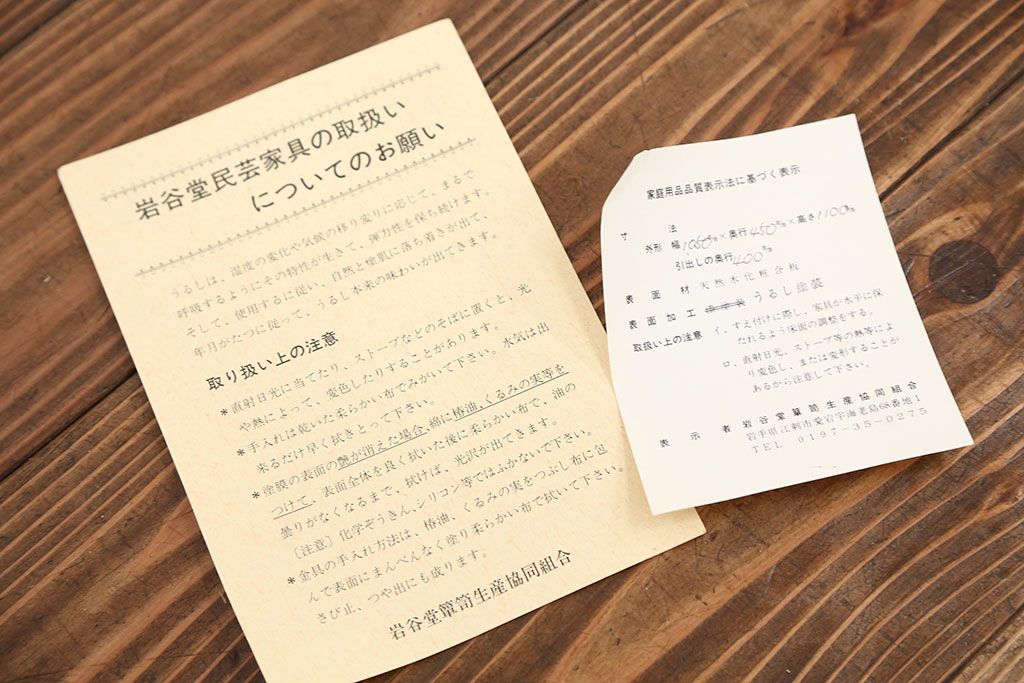 岩谷堂民芸家具の取扱い
についてのお願い
うるしは、湿度の変化や気候の移り変りに応じて、まるで
呼吸するようにその特性が生きて、弾力性を保ち続けます。
そして、使用するに従い、自然と塗肌に落ち着きが出て、
年月がたつに従って、うるし本来の味わいが出てきます。
取り扱い上の注意
*直射日光に当てたり、ストーブなどのそばに置くと、光
や熱によって、変色したりすることがあります。
*手入れは乾いた柔らかい布でみがいて下さい。水気は出
来るだけ早く拭きとって下さい。
*塗膜の表面の艶が消えた場合、綿に椿油、くるみの実等を
つけて、表面全体を良く拭いた後に柔らかい布で、油の
曇りがなくなるまで、拭けば、光沢が出てきます。
〔注意〕化学ぞうきん、シリコン等ではふかないで下さい。
*金具の手入れ方法は、椿油、くるみの実をつぶし布に包
んで表面にまんべんなく塗り柔らかい布で拭いて下さい。
さび止、つや出にも成ります。
岩谷堂簞笥生産協同組合
家庭用品品質表示法に基づく表示
寸法
外形 幅1050%×奥行450%×高さ1100%
引出しの奥行400%
表面材 天然木化粧合板
表面加工 うるし塗装
取扱い上の注意 イ、すえ付けに際し、家具が水平に保
たれるよう床面の調整をする。
ロ、直射日光、ストーブ等の熱等によ
り変色し、または変形することが
あるから注意して下さい。
表示者 岩谷堂簞笥生産協同組合
岩手県江刺市愛宕字海老島68番地1
TEL 0197-35-0275